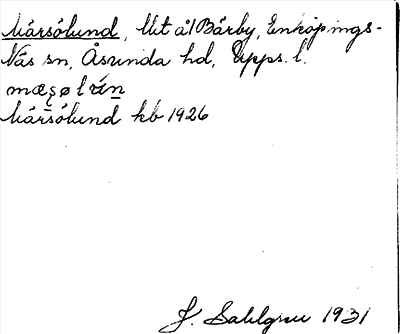 Mårsölund, lht å 1 Bårby, Enköpings-
Näs sn, Åsunda hd, Upps. l.
Mårsölund kb 1926
J. Sahlgren 1931